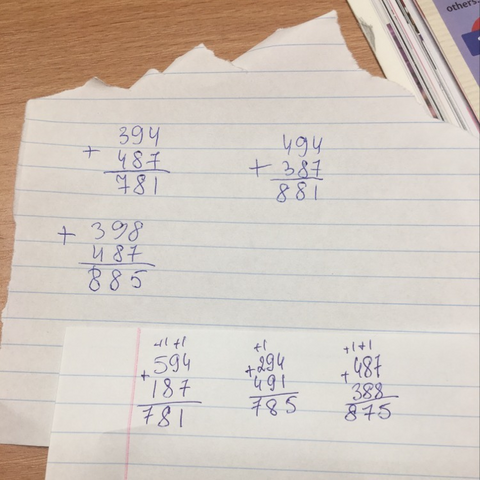 others
394
+ 487
781
494
+ 387
881
+ 398
487
885
+1 +1
594
+ 187
781
+1
+ 294
491
785
+1 +1
+ 487
388
875